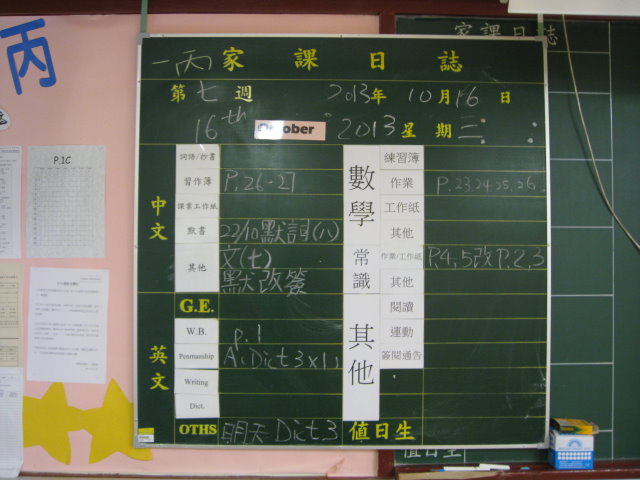 丙
家課日誌
一丙 家課日誌
第七週 2013年 10月16日
16th October 2013 星期三
P.1C
中文
詞語/抄書
習作簿 P.26-27
課業工作紙
默書 22/10默詞(八)
其他 文(七)
默改簽
英文
G.E.
W.B. p.1
Penmanship
Writing
Dict.
OTHS 明天 Dict.3
數學
練習簿
作業 P.23,24,25,26
工作紙
其他
常識
作業/工作紙 P.4,5改P.2,3
其他
其他
閱讀
運動
簽閱通告
值日生
值日生